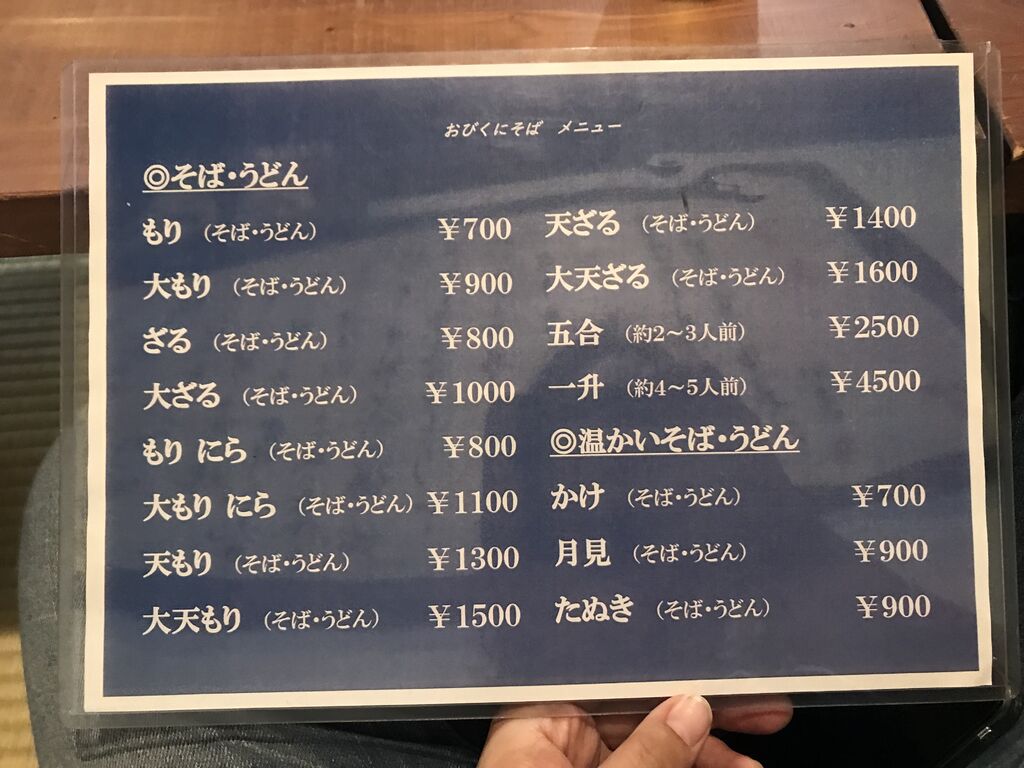 おびくにそば　メニュー
◎そば・うどん
もり（そば・うどん）　￥700
大もり（そば・うどん）　￥900
ざる（そば・うどん）　￥800
大ざる（そば・うどん）　￥1000
もり にら（そば・うどん）　￥800
大もり にら（そば・うどん）　￥1100
天もり（そば・うどん）　￥1300
大天もり（そば・うどん）　￥1500
天ざる（そば・うどん）　￥1400
大天ざる（そば・うどん）　￥1600
五合（約2～3人前）　￥2500
一升（約4～5人前）　￥4500
◎温かいそば・うどん
かけ（そば・うどん）　￥700
月見（そば・うどん）　￥900
たぬき（そば・うどん）　￥900